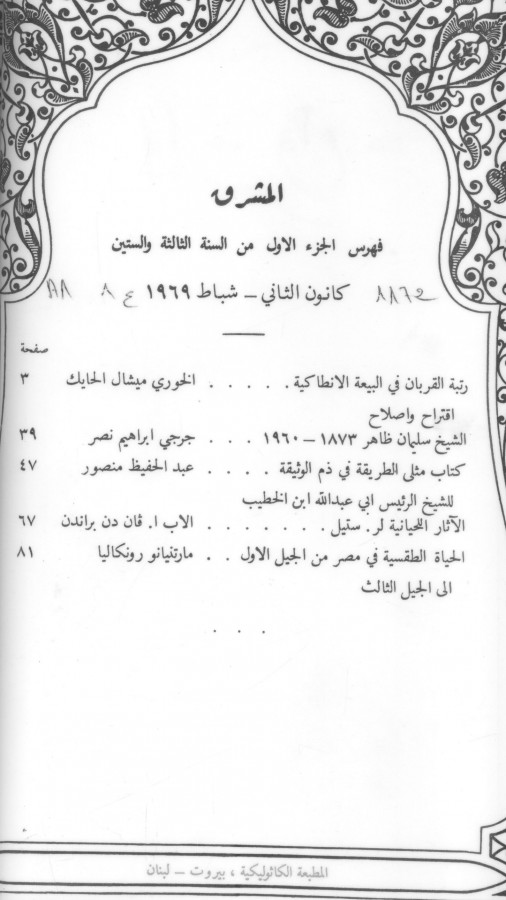 المشرق
فهرس الجزء الاول من السنة الثالثة والستين
كانون الثاني – شباط ١٩٦٩
صفحة
رتبة القربان في البيعة الانطاكية . . . . . الخوري ميشال الحايك ٣
اقتراح واصلاح
الشيخ سليمان ظاهر ١٨٧٣ – ١٩٦٠ . . . جرجي ابراهيم نصر ٣٩
كتاب مثلى الطريقة في ذم الوثيقة . . . . عبد الحفيظ منصور ٤٧
للشيخ الرئيس ابي عبدالله ابن الخطيب
الآثار اللحيانية لر . ستيل . . . . . . . الاب ا. ڤان دن براندن ٦٧
الحياة الطقسية في مصر من الجيل الاول . . مارتنيانو رونكاليا ٨١
الى الجيل الثالث
. . .
المطبعة الكاثوليكية ، بيروت – لبنان